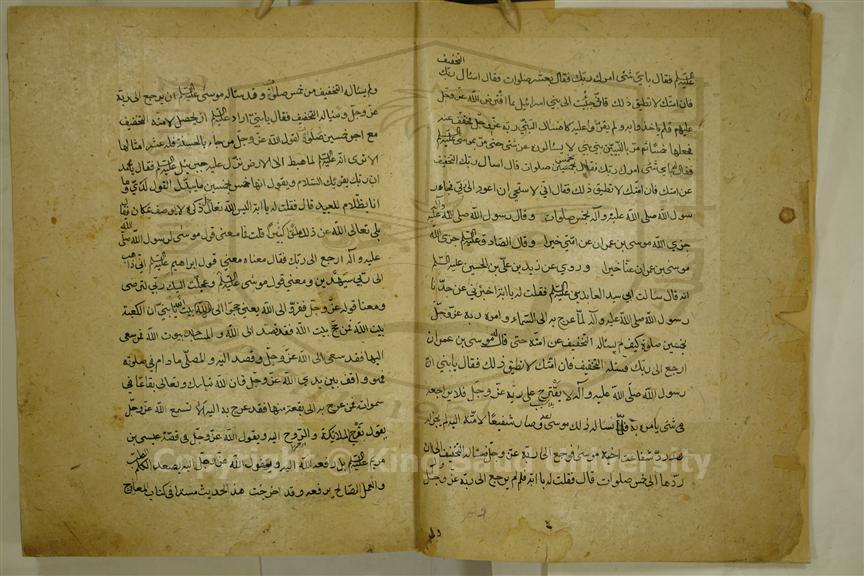 التخفيف
عليه السلم فقال باي شئ امرك ربك فقال بعشر صلوات فقال اسأل ربك
فان امتك لا تطيق ذلك فاني جئت الى بني اسرائيل بما افترض الله عز وجل
عليهم فلم ياخذوا به ولم يقروا عليه فسأل النبي ربه عز وجل فخفف عنه
فجعلها خمسا ثم مر بالنبيين نبي نبي لا يسألونه عن شئ حتى مر بموسى عليه السلم
فقال له باي شئ امرك ربك فقال بخمس صلوات قال اسأل ربك التخفيف
عن امتك فان امتك لا تطيق ذلك فقال اني لاستحيي ان اعود الى ربي فجاء
رسول الله صلى الله عليه وآله بخمس صلوات وقال رسول الله صلى الله عليه وآله
جزى الله موسى بن عمران عن امتي خيرا وقال الصادق عليه السلم جزى الله
موسى بن عمران عنا خيرا وروي عن زيد بن علي بن الحسين عليه السلم
انه قال سألت ابي سيد العابدين عليه السلم فقلت له يا ابة اخبرني عن جدنا
رسول الله صلى الله عليه وآله لما عرج به الى السماء وامره ربه عز وجل
بخمسين صلوة كيف لم يسأله التخفيف عن امته حتى قال له موسى بن عمران
ارجع الى ربك فسئله التخفيف فان امتك لا تطيق ذلك فقال يا بني ان
رسول الله صلى الله عليه وآله لا يقترح على ربه عز وجل فلا يراجعه
في شئ يامره به فلما سأله ذلك موسى وصار شفيعا لامته اليه لم يجز له
رد شفاعة اخيه موسى فرجع الى ربه عز وجل فسأله التخفيف الى ان
ردها الى خمس صلوات قال فقلت له يا ابة فلم لم يرجع الى ربه عز وجل
ولم
ولم يسأله التخفيف من خمس صلوة وقد سأله موسى عليه السلم ان يرجع الى ربه
عز وجل ويسأله التخفيف فقال يا بني اراد عليه السلم ان يحصل لامته التخفيف
مع اجر خمسين صلوة لقول الله عز وجل من جاء بالحسنة فله عشر امثالها
الا ترى انه عليه السلم لما هبط الى الارض نزل عليه جبرئيل عليه السلم فقال يا محمد
ان ربك يقرئك السلام ويقول انها خمس بخمسين ما يبدل القول لدي وما
انا بظلام للعبيد قال فقلت له يا ابة اليس الله تعالى ذكره لا يوصف بمكان فقال
بلى تعالى الله عن ذلك علوا كبيرا قلت فما معنى قول موسى لرسول الله صلى الله
عليه وآله ارجع الى ربك فقال معناه معنى قول ابراهيم عليه السلم اني ذاهب
الى ربي سيهدين ومعنى قول موسى عليه السلم وعجلت اليك رب لترضى
ومعنا قوله عز وجل ففروا الى الله يعني حجوا الى بيت الله يا بني ان الكعبة
بيت الله فمن حج بيت الله فقد قصد الى الله والمساجد بيوت الله فمن سعى
اليها فقد سعى الى الله عز وجل وقصد اليه والمصلي ما دام في صلوته
فهو واقف بين يدي الله عز وجل فان لله تبارك وتعالى بقاعا في
سمواته فمن عرج به الى بقعة منها فقد عرج به اليه الا تسمع الله عز وجل
يقول تعرج الملائكة والروح اليه ويقول الله عز وجل في قصة عيسى بن
مريم عليه السلم بل رفعه الله اليه ويقول الله عز وجل اليه يصعد الكلم الطيب
والعمل الصالح يرفعه وقد اخرجت هذا الحديث مسندا في كتاب المعارج
Copyright © King Saud University